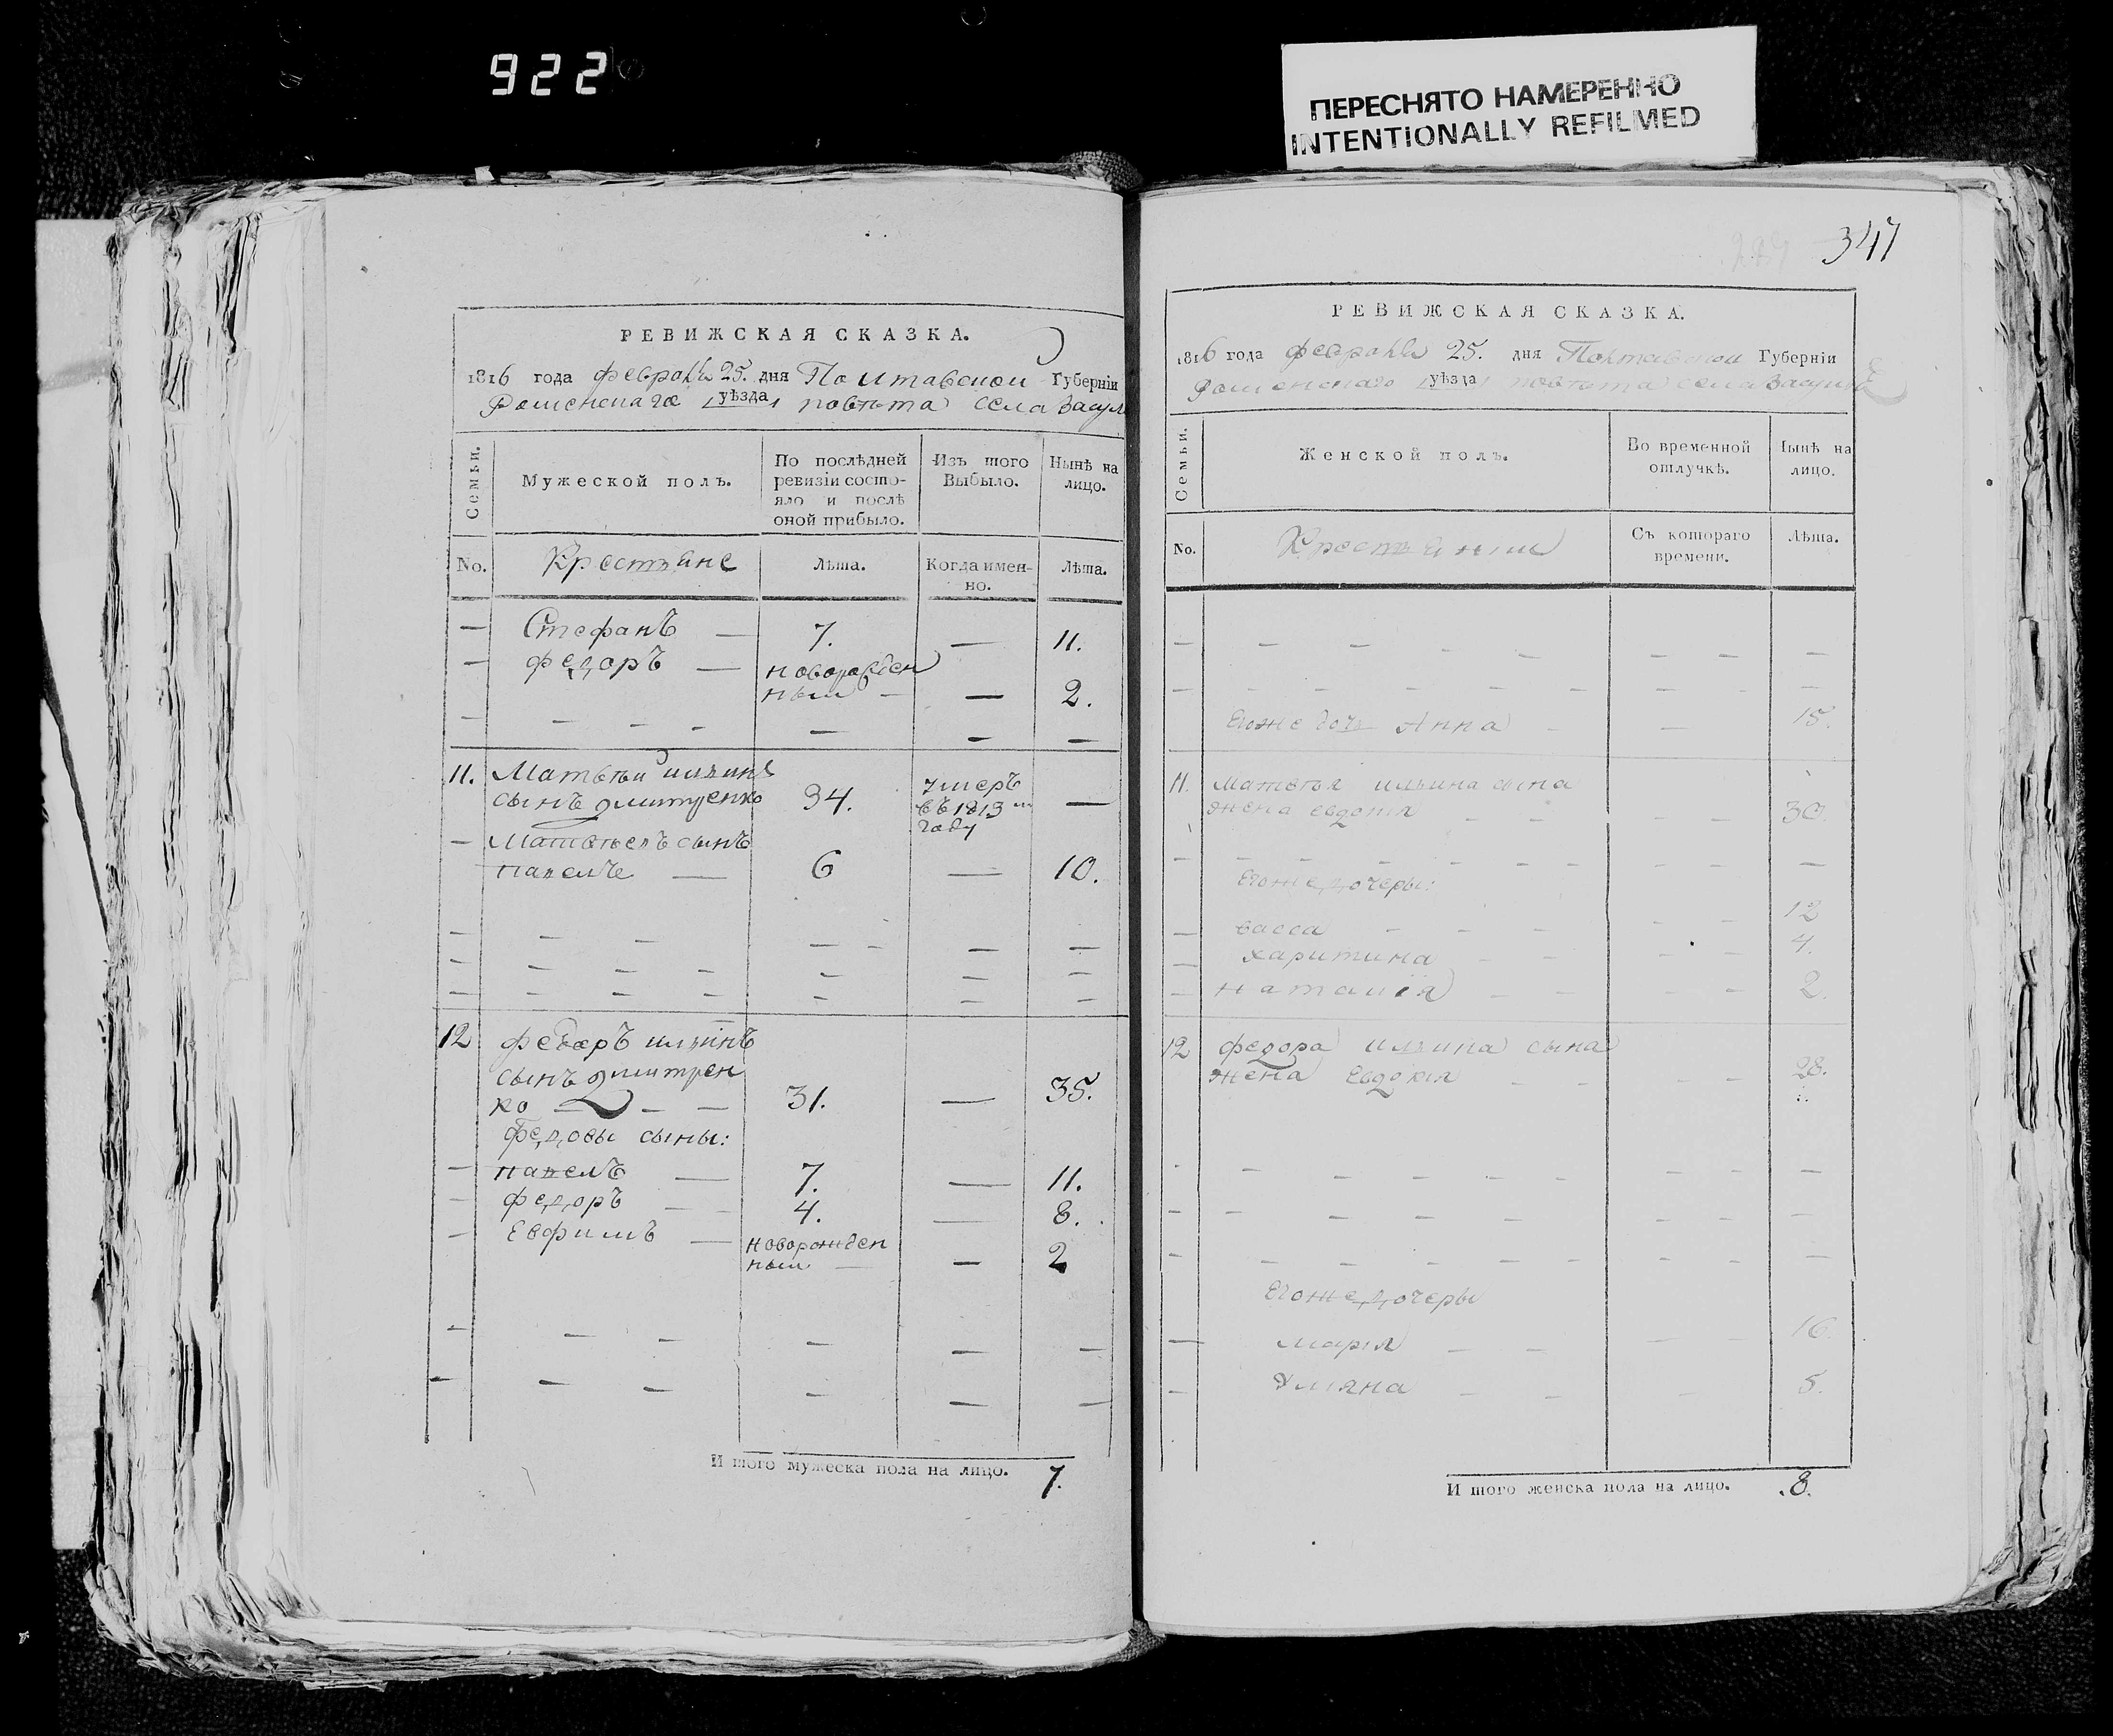 922
ПЕРЕСНЯТО НАМЕРЕННО
INTENTIONALLY REFILMED
347
РЕВИЖСКАЯ СКАЗКА.
1816 года февраля 25. дня Полтавской Губернии
Роменскаго уѣзда повѣта села
Семьи.
Мужеской полъ.
По послѣдней
ревизіи состо-
яло и послѣ
оной прибыло.
Изъ того
Выбыло.
Нынѣ на
лицо.
No.
Крестьяне
Лѣта.
Когда имен-
но.
Лѣта.
— Стефанъ — 7. — 11.
— федоръ — новорожден
ный — — 2.
— — — — — — —
11. Матвѣй ильинъ умеръ
сынъ дмитренко 34. въ 1813м —
году
— Матвѣевъ сынъ
павелъ — 6 — 10.
— — — — — — —
— — — — — — — —
— — — — — — —
12 федоръ ильинъ
сынъ дмитрен
ко — — — 31. — 35.
федоровы сыны:
— павелъ — 7. — 11.
— федоръ — — 4. — 8.
— Евфимъ — новорожден
ный — — 2
— — — — — —
— — — — — —
И того мужеска пола на лицо. 7.
РЕВИЖСКАЯ СКАЗКА.
1816 года февраля 25. дня Полтавской Губерніи
Роменскаго уѣзда повѣта села
Семьи.
Женской полъ.
Во временной
отлучкѣ.
Нынѣ на
лицо.
No.
Съ котораго
времени.
Лѣта.
— — — — — — — — —
— — — — — — — — — —
Егоже дочь Анна — — 15.
11. Матвѣя ильина сына
жена евдокія — — — — 30.
— — — — — — — — — —
Егоже дочеры:
— васса — — — — — 12
— харитина — — — — 4.
— наталія — — — — 2.
12 федора ильина сына
жена Евдокія — — — — 28.
— — — — — — — — —
— — — — — — — — —
— — — — — — — — — —
Егоже дочеры
— марія — — — — 16.
— Уліяна — — — 5.
И того женска пола на лицо. 8.